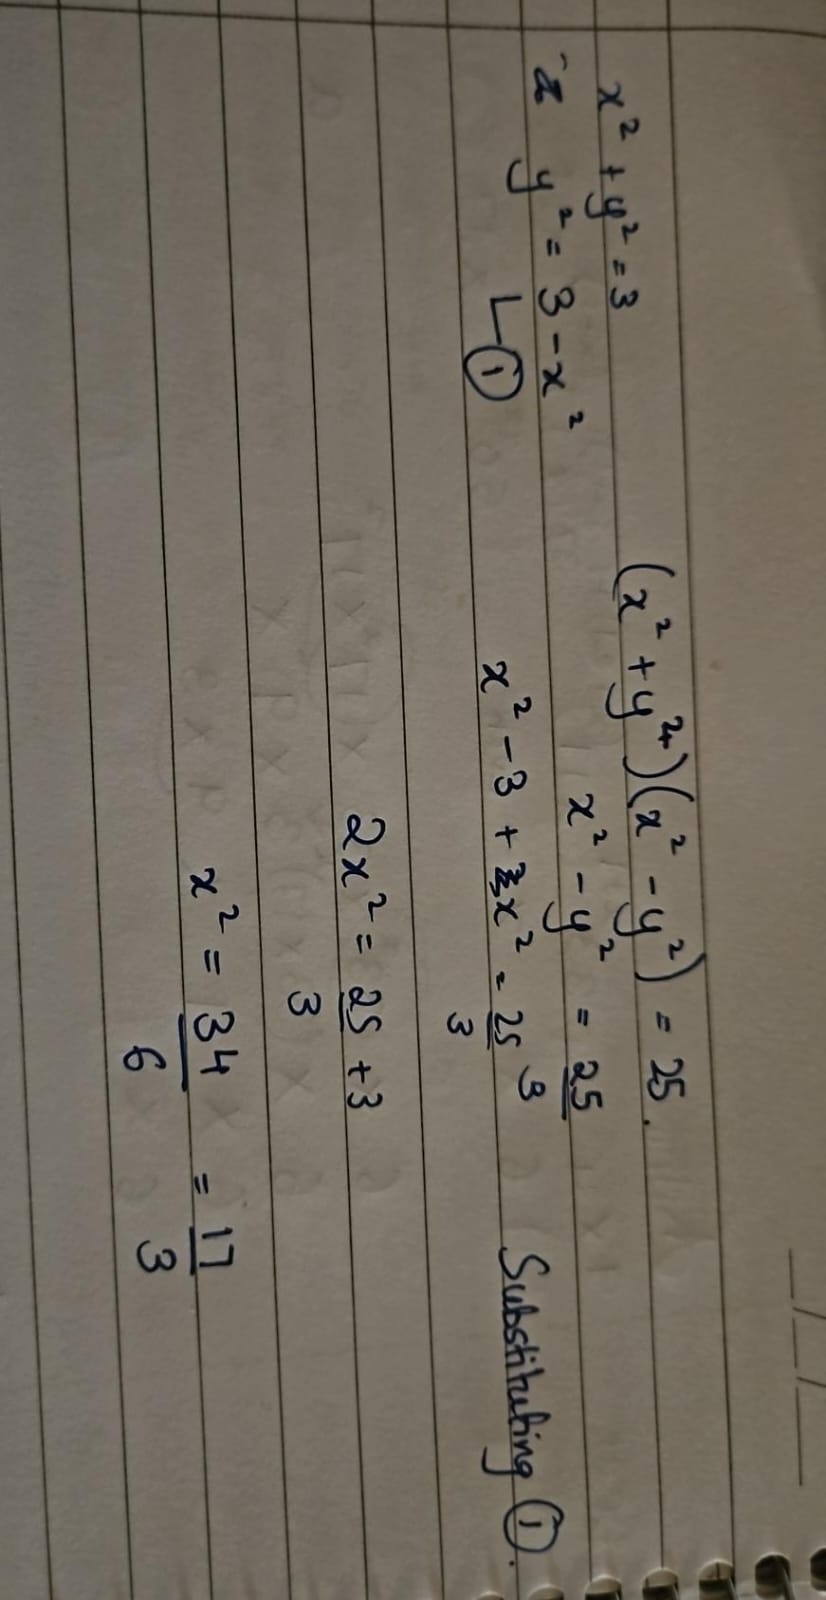 x² + y² = 3
y² = 3 - x²
①
(x² + y²)(x² - y²) = 25.
x² - y² = 25/3
x² - 3 + x² = 25/3 Substituting ①.
2x² = 25/3 + 3
x² = 34/6 = 17/3